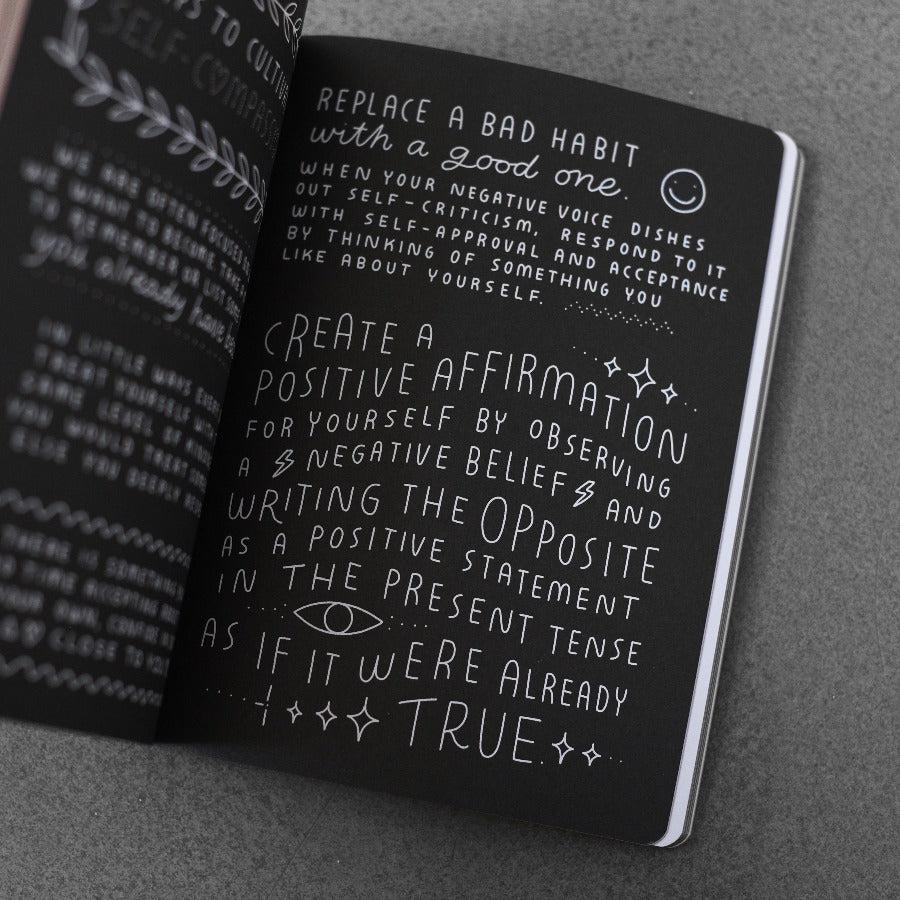 TO CULTIV
SELF-COMPASS
WE ARE OFTEN FOCUSED
WE WANT TO BECOME THAT
TO REMEMBER OR LIST
you already have
IN LITTLE WAYS EVERY
TREAT YOURSELF WITH
SAME LEVEL OF
YOU WOULD TREAT
ELSE YOU DEEPLY
THERE IS SOMETHING
TIME ACCEPTING
YOUR OWN,
CLOSE TO YOU
REPLACE A BAD HABIT
with a good one.
WHEN YOUR NEGATIVE VOICE DISHES
OUT SELF-CRITICISM, RESPOND TO IT
WITH SELF-APPROVAL AND ACCEPTANCE
BY THINKING OF SOMETHING YOU
LIKE ABOUT YOURSELF.
CREATE A
POSITIVE AFFIRMATION
FOR YOURSELF BY OBSERVING
A NEGATIVE BELIEF AND
WRITING THE OPPOSITE
AS A POSITIVE STATEMENT
IN THE PRESENT TENSE
AS IF IT WERE ALREADY
TRUE.